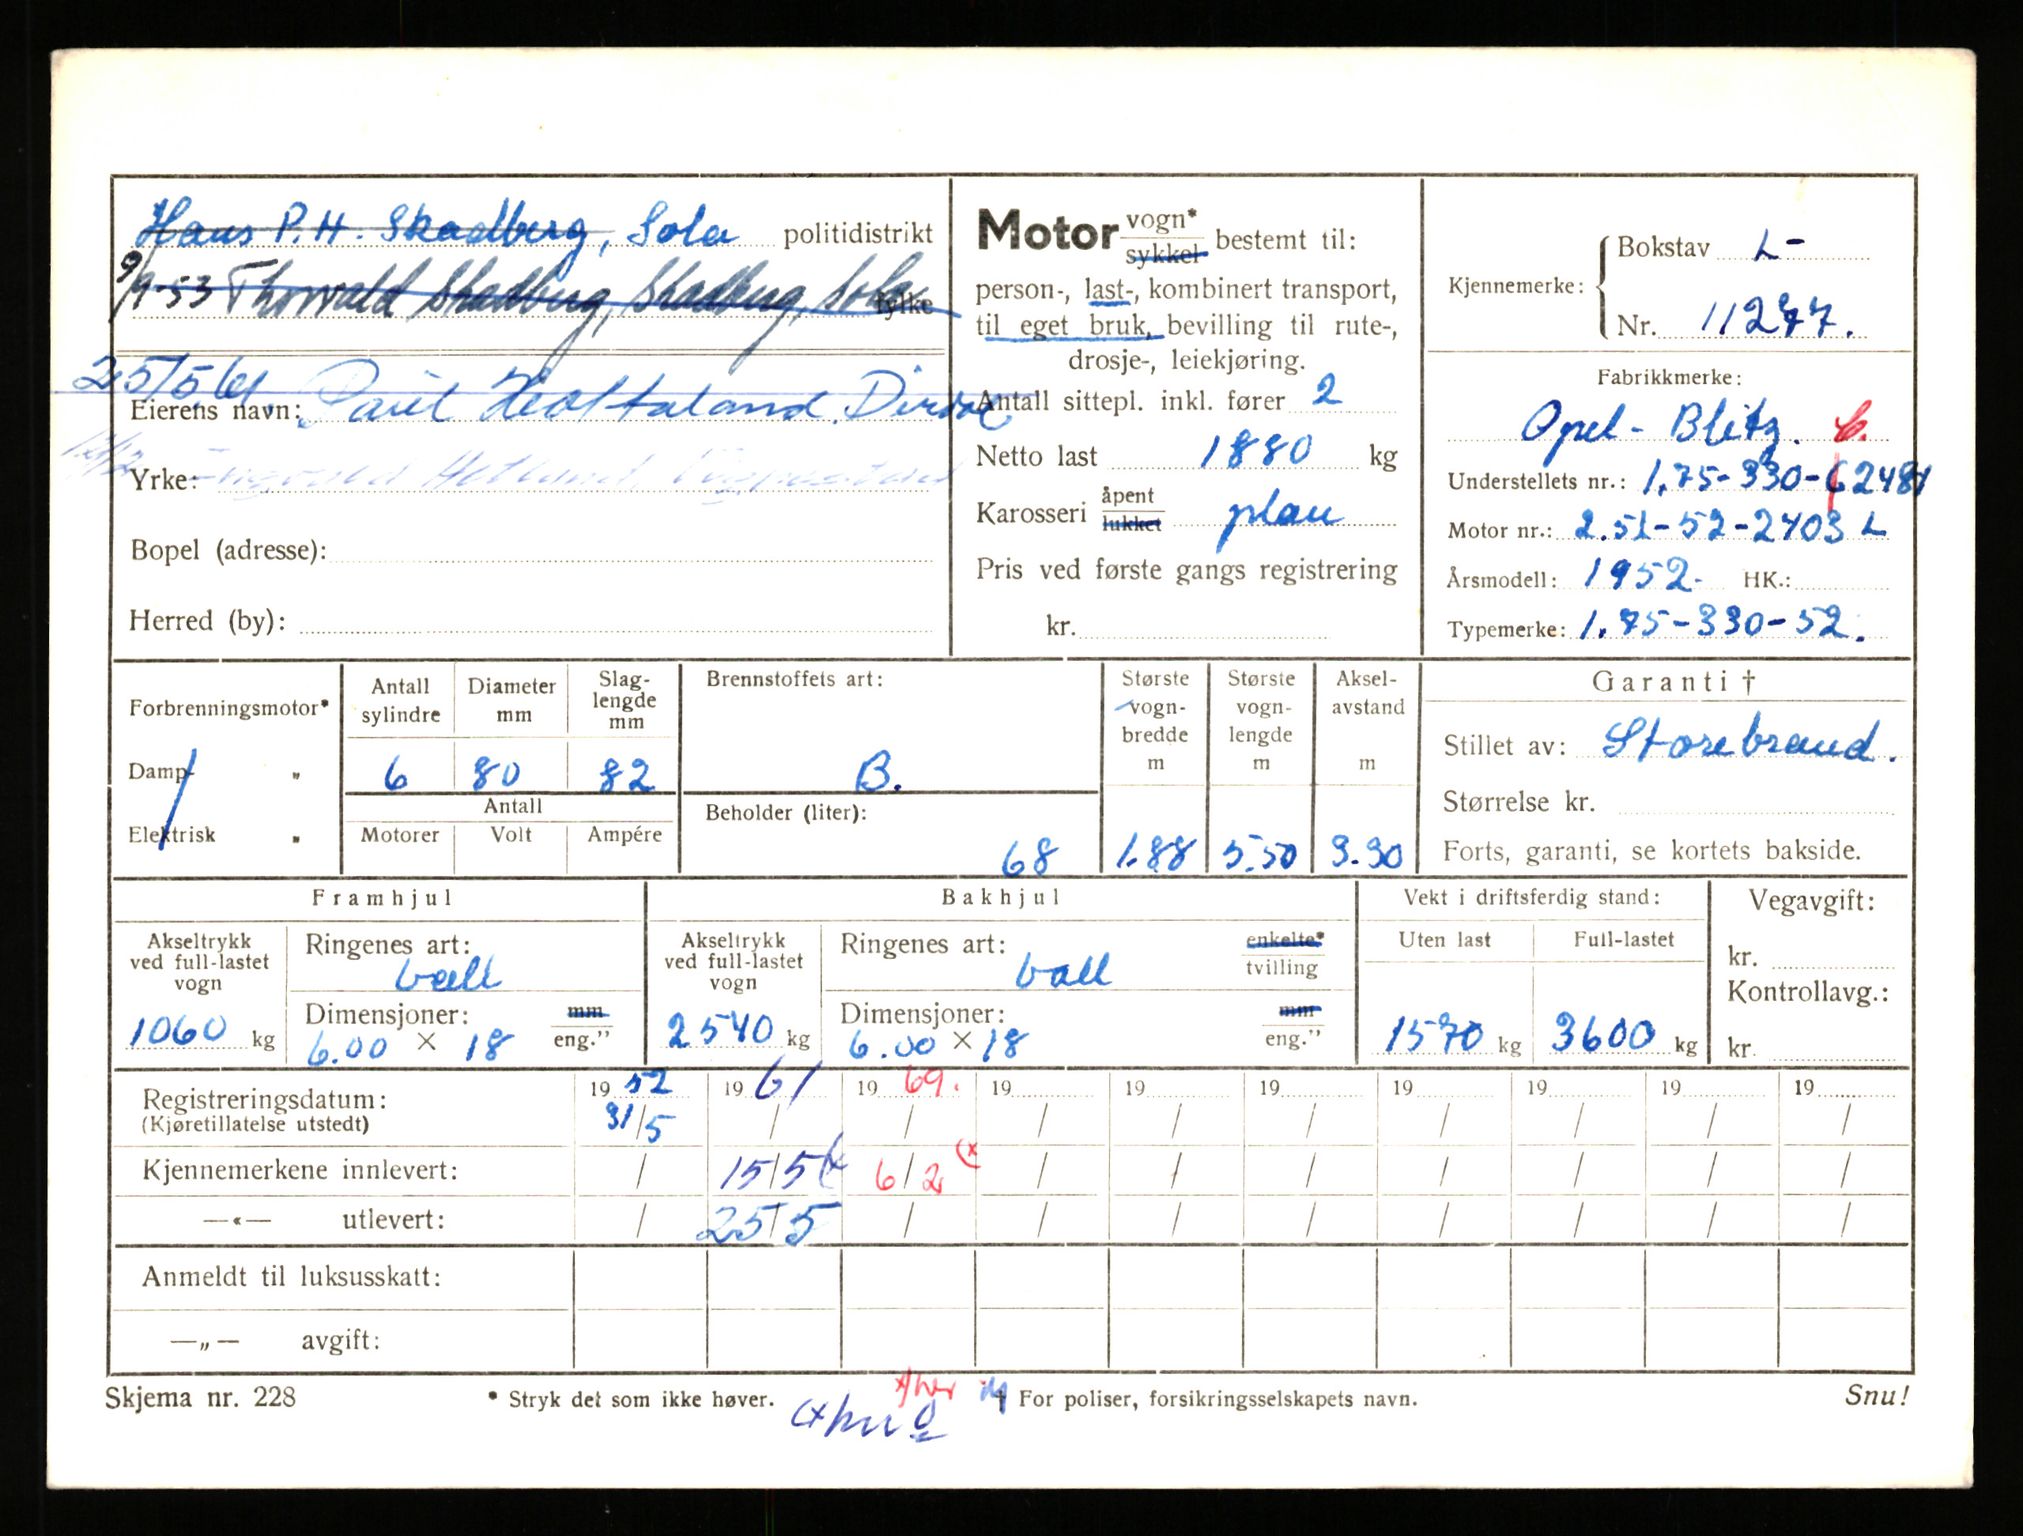 Hans P. H. Skadberg, Sola politidistrikt
9/9-53 Thorvald Skadberg, Skadberg, Sola fylke
25/5 61
Eierens navn: Paul Dirdal
Yrke:
Bopel (adresse):
Herred (by):
Motor vogn* sykkel bestemt til:
person-, last-, kombinert transport,
til eget bruk, bevilling til rute-,
drosje-, leiekjøring.
Antall sittepl. inkl. fører 2
Netto last 1880 kg
Karosseri åpent lukket plan
Pris ved første gangs registrering
kr.
Kjennemerke: Bokstav L-
Nr. 11277.
Fabrikkmerke:
Opel-Blitz.
Understellets nr.: 1.75-330-
Motor nr.: 2.5L-52-2403 L
Årsmodell: 1952. HK.:
Typemerke: 1.75-330-52.
Forbrenningsmotor*
Damp- „
Elektrisk „
Antall sylindre Diameter mm Slag-lengde mm
6 80 82
Antall
Motorer Volt Ampére
Brennstoffets art:
B.
Beholder (liter):
68
Største vogn-bredde m
1.88
Største vogn-lengde m
5.50
Aksel-avstand m
3.30
Garanti †
Stillet av: Storebrand.
Størrelse kr.
Forts, garanti, se kortets bakside.
Framhjul
Akseltrykk ved full-lastet vogn
1060 kg
Ringenes art: ball
Dimensjoner: mm eng."
6.00 × 18
Bakhjul
Akseltrykk ved full-lastet vogn
2540 kg
Ringenes art: ball enkelte* tvilling
Dimensjoner: mm eng."
6.00 × 18
Vekt i driftsferdig stand:
Uten last Full-lastet
1570 kg 3600 kg
Vegavgift:
kr.
Kontrollavg.:
kr.
Registreringsdatum: 19 52 19 61 19 69. 19 19 19 19 19 19 19
(Kjøretillatelse utstedt) 31/5 / / / / / / / / /
Kjennemerkene innlevert: / 15/5 (x 6/2 (x / / / / / / /
—«— utlevert: / 25/5 / / / / / / / /
Anmeldt til luksusskatt:
—„— avgift:
Skjema nr. 228 * Stryk det som ikke høver. † For poliser, forsikringsselskapets navn. Snu!